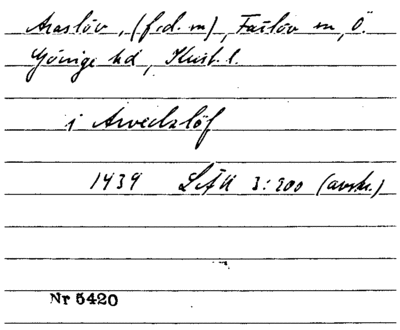 Araslöv, (f.d. m), Farlöv sn, Ö.
Göinge hd, Krist. l.
i Arvedzlöf
1439 LÄU 3:200 (avskr.)
Nr 5420